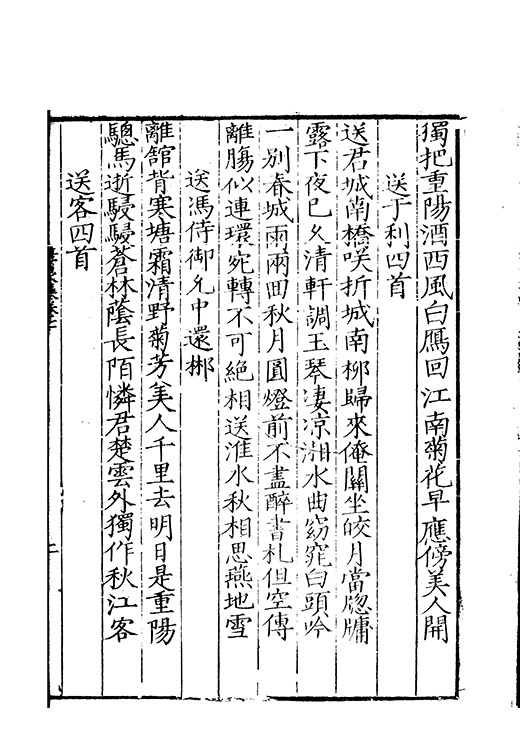 獨把重陽酒西風白鴈回江南菊花早應傍美人開
送于利四首
送君城南橋笑折城南柳歸來俺關坐皎月當牕牗
露下夜已久清軒調玉琴淒凉湘水曲窈窕白頭吟
一別春城雨兩回秋月圓燈前不盡醉書札但空傳
離膓似連環宛轉不可絕相送淮水秋相思燕地雪
送馮侍御允中還郴
離舘背寒塘霜清野菊芳美人千里去明日是重陽
驄馬逝駸駸蒼林蔭長陌憐君楚雲外獨作秋江客
送客四首